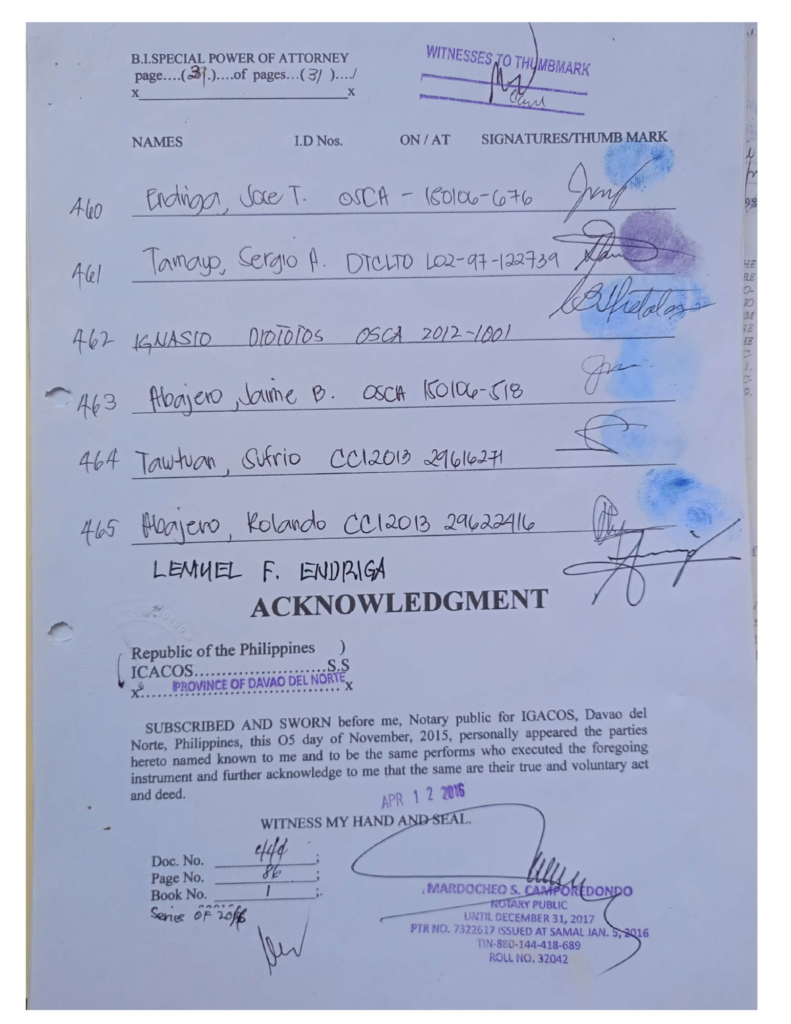 B.I.SPECIAL POWER OF ATTORNEY
page....(31.)....of pages...(31 )..../
x x
WITNESSES TO THUMBMARK
NAMES I.D Nos. ON / AT SIGNATURES/THUMB MARK
460 Endriga, Jose T. OSCA - 150106-676
461 Tamayo, Sergio A. DTCLTO L02-97-122739
462 IGNASIO DIOTOTOS OSCA 2012-1001
463 Abajero, Jaime B. OSCA 150106-518
464 Tawtuan, Sufrio CCI2013 29616271
465 Abajero, Rolando CCI2013 29622416
LEMUEL F. ENDRIGA
ACKNOWLEDGMENT
Republic of the Philippines )
ICACOS........................S.S
x PROVINCE OF DAVAO DEL NORTE x
SUBSCRIBED AND SWORN before me, Notary public for IGACOS, Davao del
Norte, Philippines, this O5 day of November, 2015, personally appeared the parties
hereto named known to me and to be the same performs who executed the foregoing
instrument and further acknowledge to me that the same are their true and voluntary act
and deed.
APR 12 2016
WITNESS MY HAND AND SEAL.
Doc. No. ;
Page No. 86 ;
Book No. 1 ;.
Series OF 2016
MARDOCHEO S. CAMPOREDONDO
NOTARY PUBLIC
UNTIL DECEMBER 31, 2017
PTR NO. 7322617 ISSUED AT SAMAL JAN. 5, 2016
TIN-880-144-418-689
ROLL NO. 32042